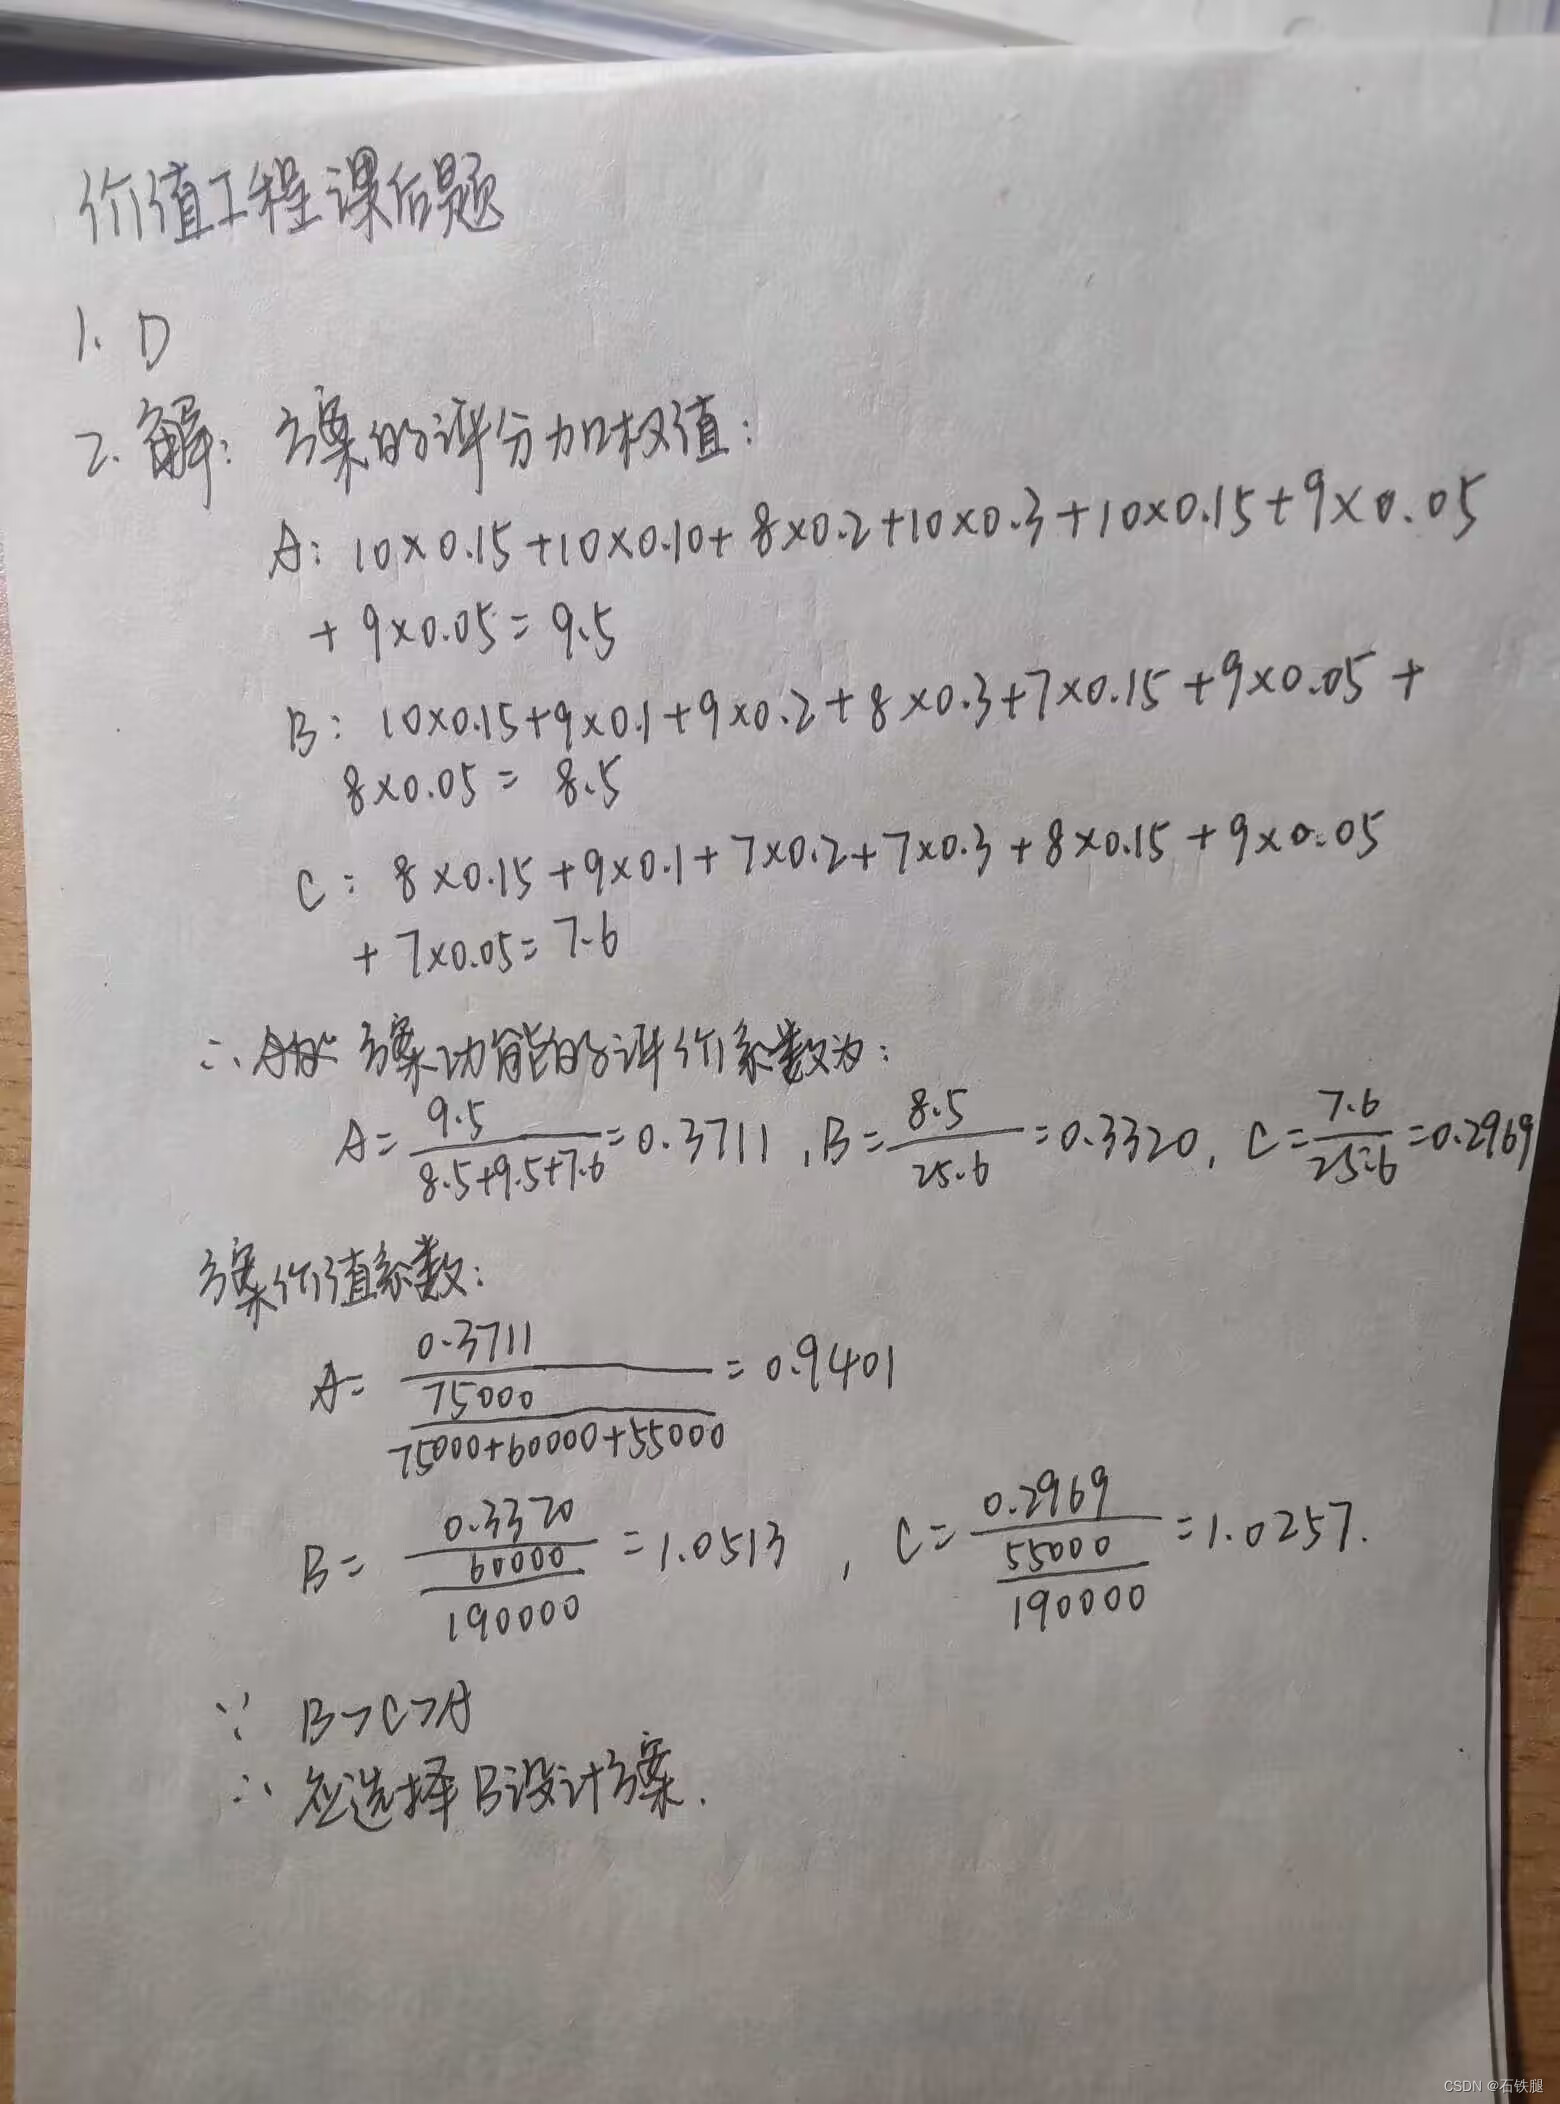 价值工程课后题
1. D
2. 解: 方案的评分加权值:
A: 10×0.15+10×0.10+8×0.2+10×0.3+10×0.15+9×0.05
+9×0.05=9.5
B: 10×0.15+9×0.1+9×0.2+8×0.3+7×0.15+9×0.05+
8×0.05=8.5
C: 8×0.15+9×0.1+7×0.2+7×0.3+8×0.15+9×0.05
+7×0.05=7.6
∴ 方案功能的评价系数为:
A=9.5/(8.5+9.5+7.6)=0.3711, B=8.5/25.6=0.3320, C=7.6/25.6=0.2969
方案价值系数:
A=0.3711/(75000/(75000+60000+55000))=0.9401
B=0.3320/(60000/190000)=1.0513, C=0.2969/(55000/190000)=1.0257.
∵ B>C>A
∴ 应选择B设计方案.
CSDN @石铁腿